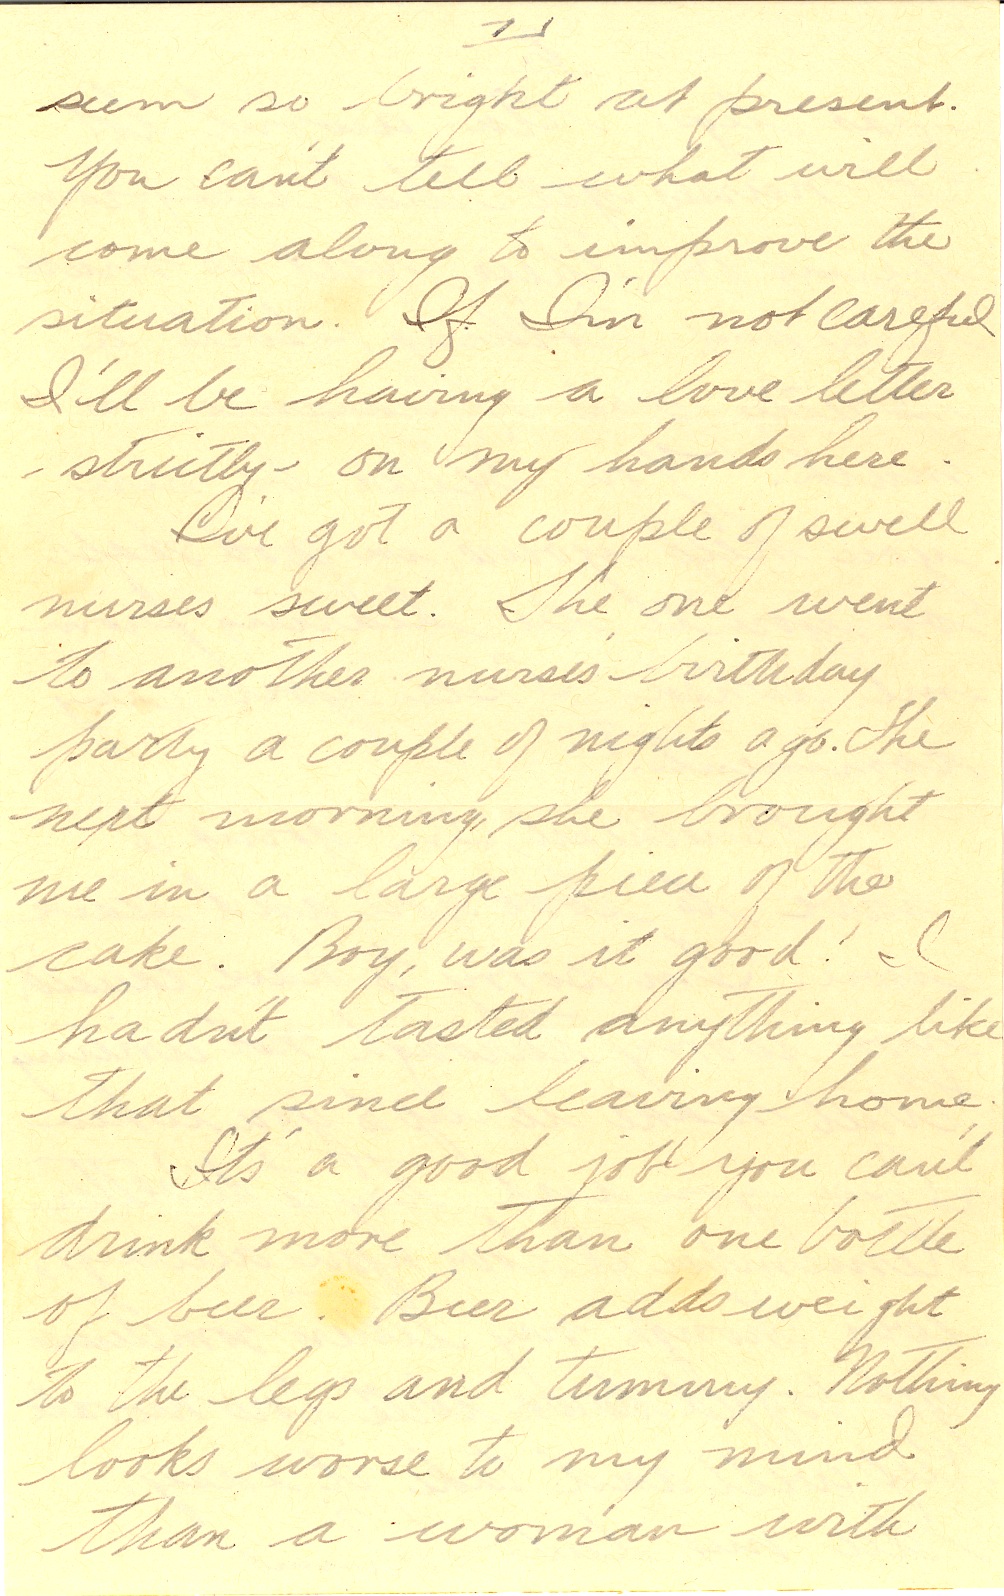 seem so bright at present.
You can't tell what will
come along to improve the
situation. If I'm not careful
I'll be having a love letter
- strictly - on my hands here.
I've got a couple of swell
nurses sweet. The one went
to another nurses' birthday
party a couple of nights ago. The
next morning, she brought
me in a large piece of the
cake. Boy, was it good! I
hadn't tasted anything like
that since leaving home.
It's a good job you can't
drink more than one bottle
of beer. Beer adds weight
to the legs and tummy. Nothing
looks worse to my mind
than a woman with